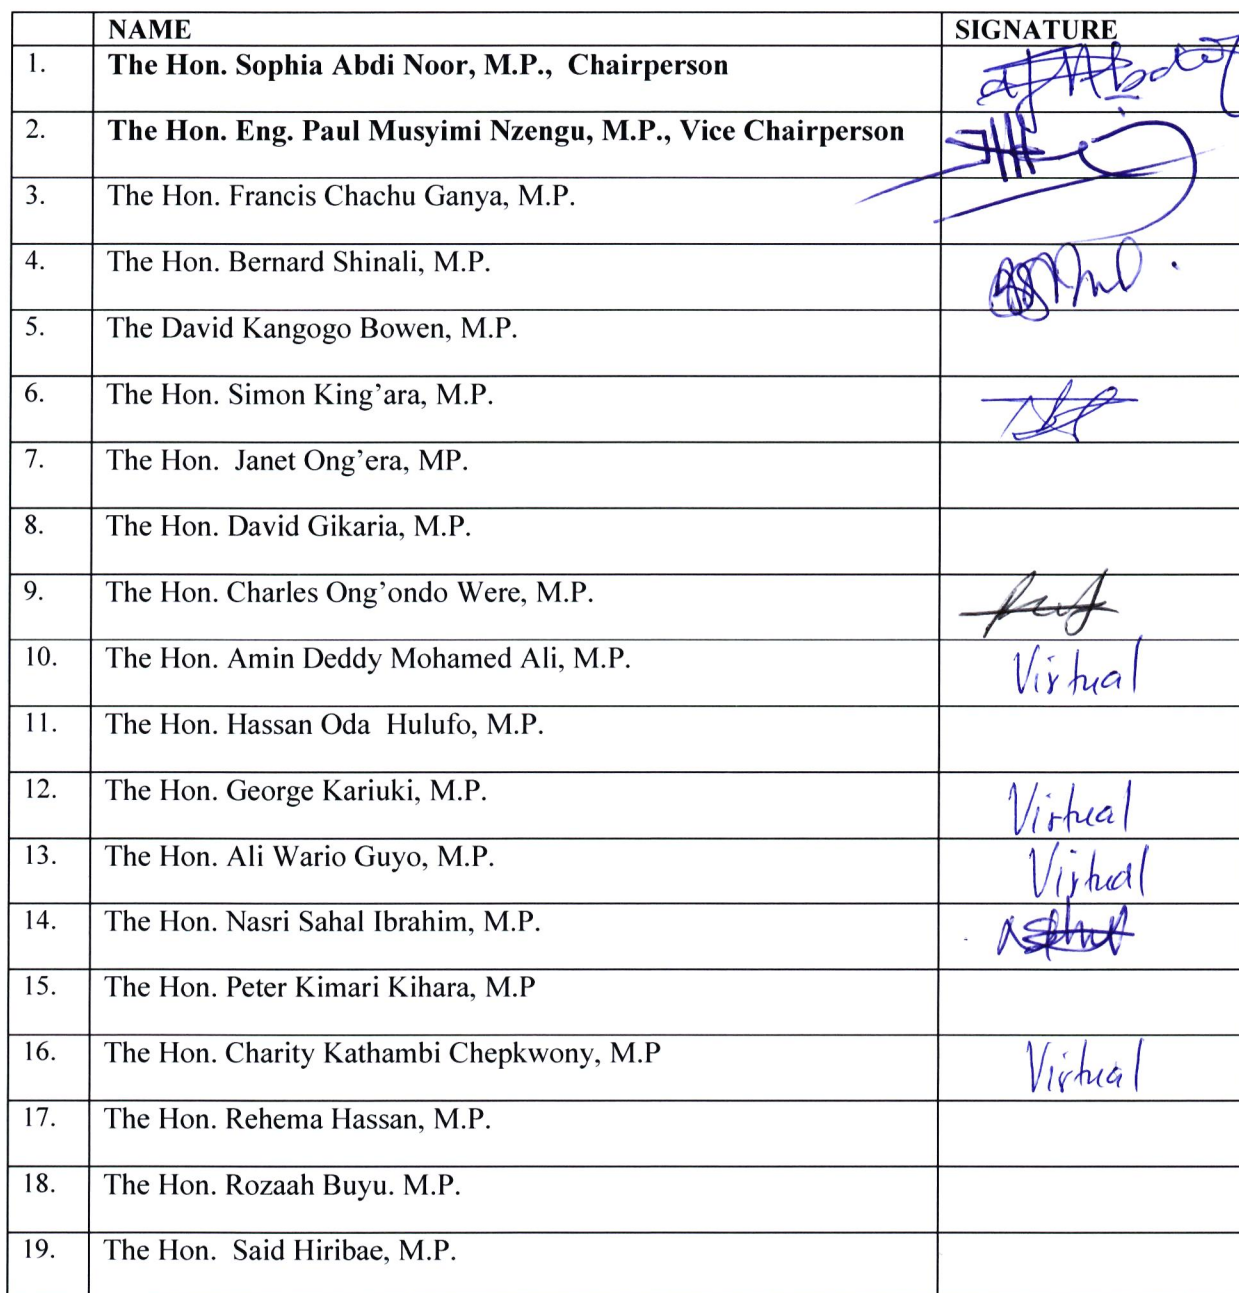 NAME SIGNATURE
1. The Hon. Sophia Abdi Noor, M.P., Chairperson
2. The Hon. Eng. Paul Musyimi Nzengu, M.P., Vice Chairperson
3. The Hon. Francis Chachu Ganya, M.P.
4. The Hon. Bernard Shinali, M.P.
5. The David Kangogo Bowen, M.P.
6. The Hon. Simon King’ara, M.P.
7. The Hon. Janet Ong’era, MP.
8. The Hon. David Gikaria, M.P.
9. The Hon. Charles Ong’ondo Were, M.P.
10. The Hon. Amin Deddy Mohamed Ali, M.P. Virtual
11. The Hon. Hassan Oda Hulufo, M.P.
12. The Hon. George Kariuki, M.P. Virtual
13. The Hon. Ali Wario Guyo, M.P. Virtual
14. The Hon. Nasri Sahal Ibrahim, M.P.
15. The Hon. Peter Kimari Kihara, M.P
16. The Hon. Charity Kathambi Chepkwony, M.P Virtual
17. The Hon. Rehema Hassan, M.P.
18. The Hon. Rozaah Buyu. M.P.
19. The Hon. Said Hiribae, M.P.